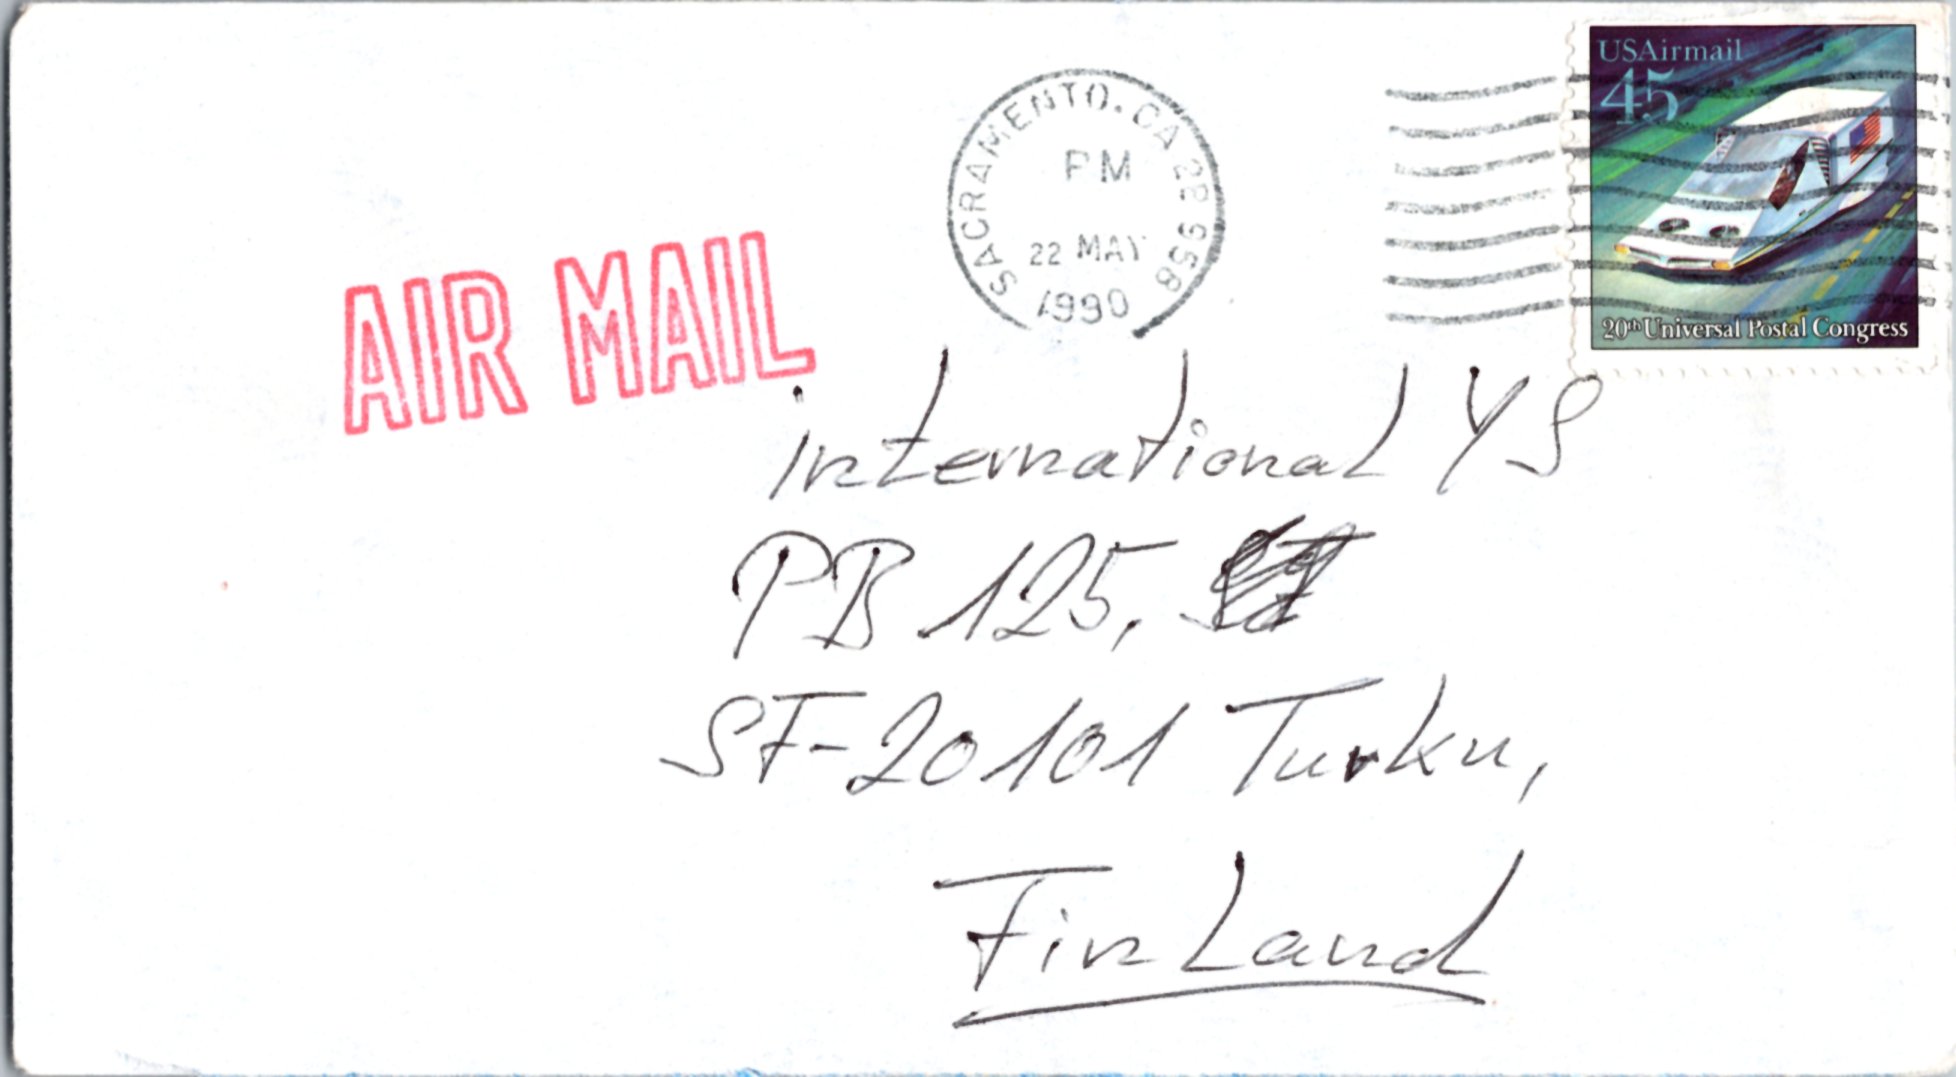 USAirmail
45
20th Universal Postal Congress
SACRAMENTO, CA 22 958
PM
22 MAY
1990
AIR MAIL
international YS
PB 125,
SF-20101 Turku,
Finland